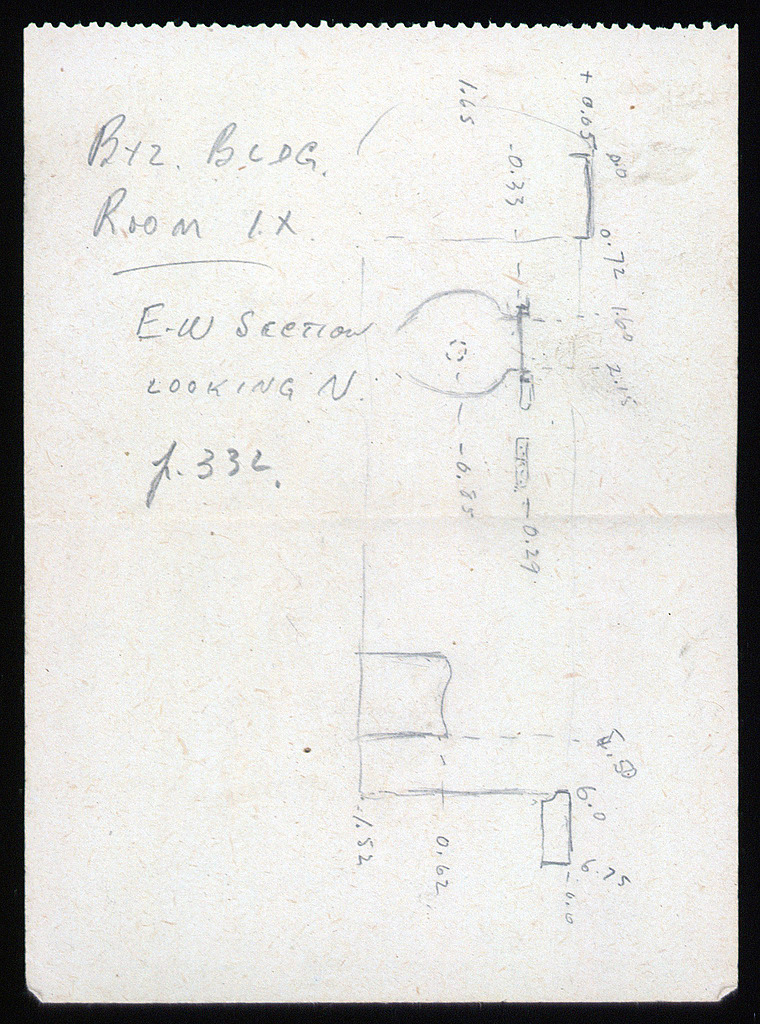 BYZ. BLDG.
ROOM IX
E-W SECTION
LOOKING N.
p. 332.
1.65
+ 0.05
0.0
-0.33
0.72
1.60
2.15
-0.85
-0.29
6.0
6.75
-0.0
0.62
-1.52